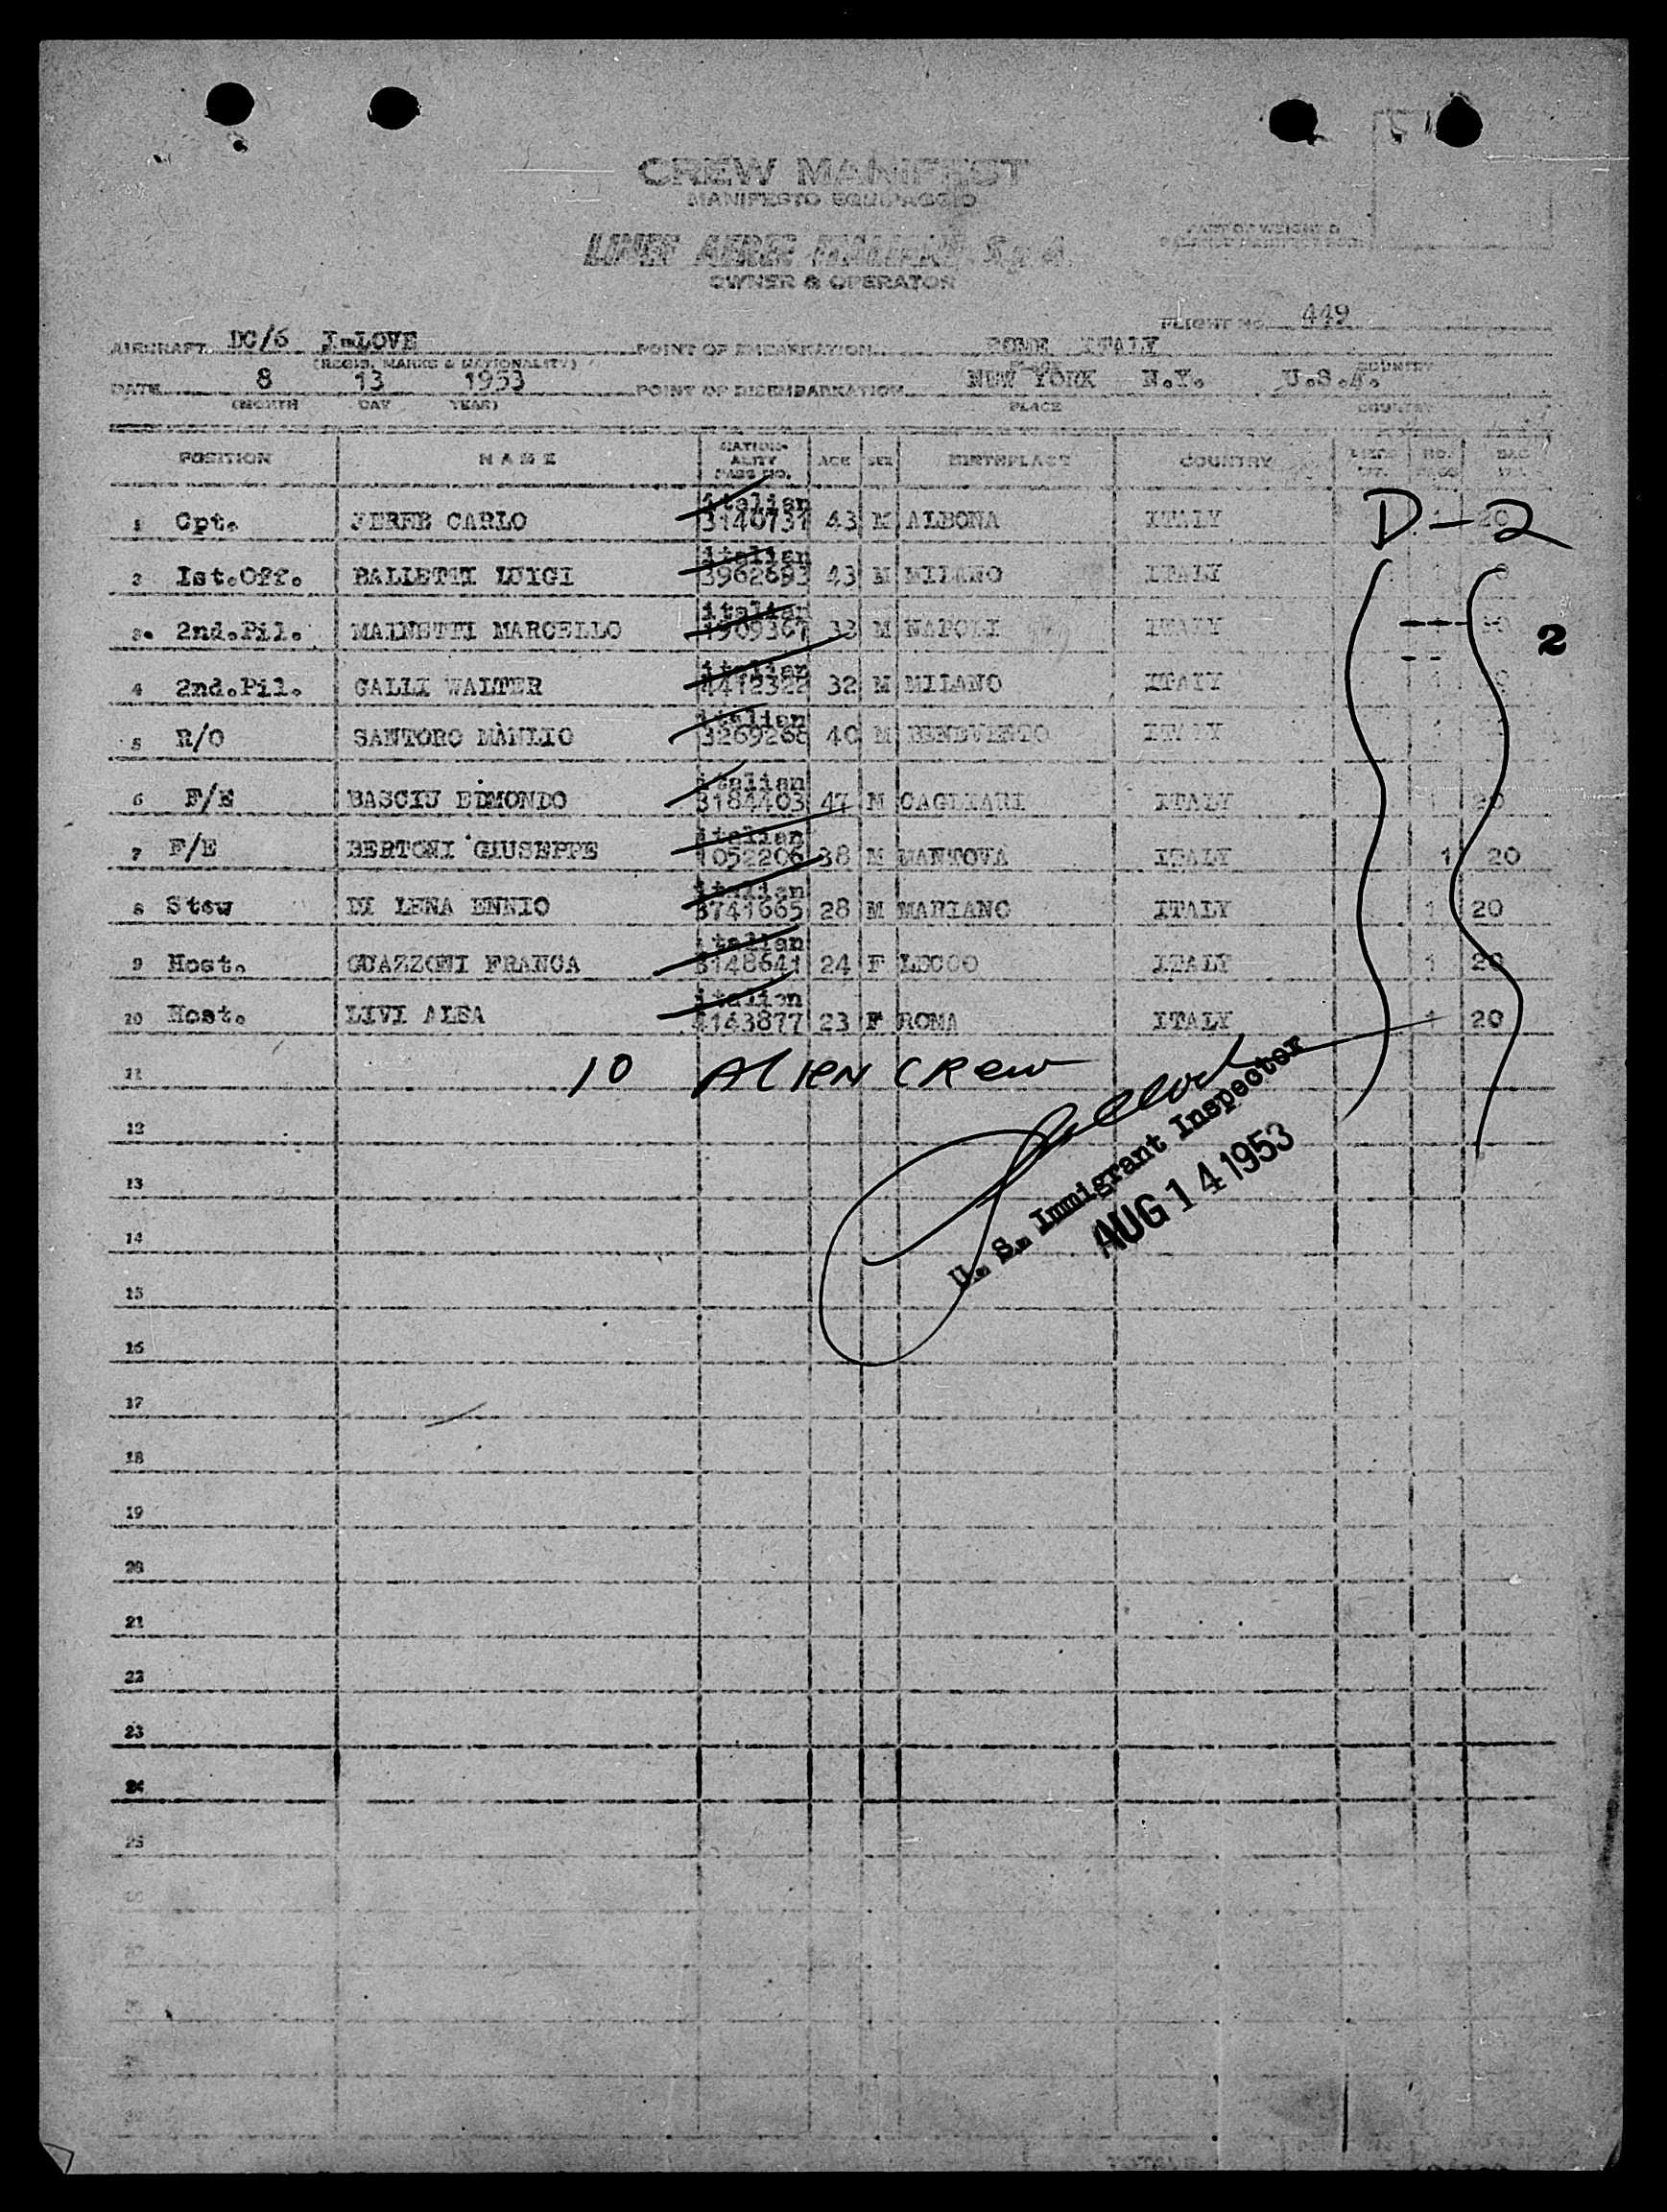 CREW MANIFEST
MANIFESTO EQUIPAGGIO
LINEE AEREE ITALIANE S.p.A.
OWNER & OPERATOR
FLIGHT NO. 449
AIRCRAFT DC/6 I-LOVE POINT OF EMBARKATION ROME ITALY
(REGIS. MARKS & NATIONALITY) COUNTRY
DATE 8 13 1953 POINT OF DISEMBARKATION NEW YORK N.Y. U.S.A.
(MONTH DAY YEAR) PLACE COUNTRY
POSITION NAME NATION-ALITY PASS NO. AGE SEX BIRTHPLACE COUNTRY NO. BAG
D-2
1 Cpt. CARLO italian 3140731 43 M ALBONA ITALY 1 20
2 Ist.Off. BALLETTI LUIGI italian 3962693 43 M MILANO ITALY 1
3. 2nd.Pil. MAINETTI MARCELLO italian 1909367 33 M NAPOLI ITALY 1 2
4 2nd.Pil. GALLI WALTER italian 4412322 32 M MILANO ITALY 1
5 R/O SANTORO MANLIO italian 3269268 40 M BENEVENTO ITALY 1
6 F/E BASCIU EDMONDO italian 3184403 47 M CAGLIARI ITALY 1 20
7 F/E BERTONI GIUSEPPE italian 1052206 38 M MANTOVA ITALY 1 20
8 Stew DI LENA ENNIO italian 3741665 28 M MARIANO ITALY 1 20
9 Host. GUAZZONI FRANCA italian 3148641 24 F LECCO ITALY 1 20
10 Host. LIVI ALBA italian 4143877 23 F ROMA ITALY 1 20
11 10 ALIEN CREW
12
U. S. Immigrant Inspector
AUG 14 1953
13
14
15
16
17
18
19
20
21
22
23
24
25